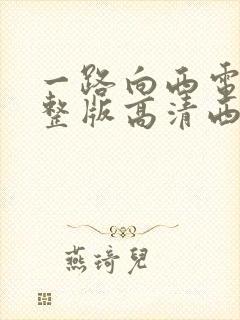 一路向西電
整版高清西
燕琦兒